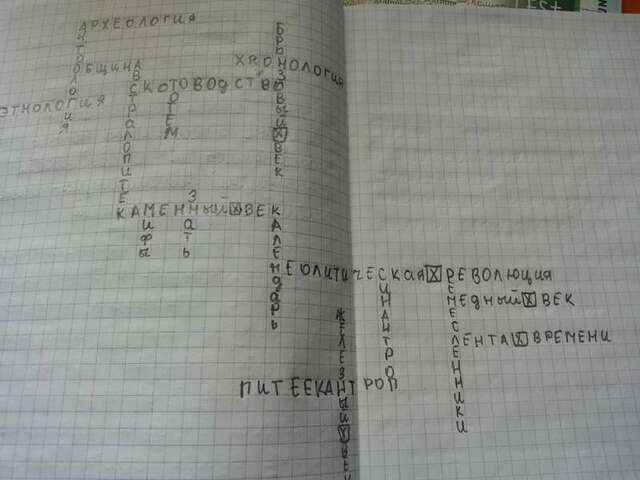 АРХЕОЛОГИЯ
БРОНЗОВЫЙ X ВЕК
ОБЩИНА
ХРОНОЛОГИЯ
АВСТРАЛОПИТЕК
СКОТОВОДСТВО
ТОТЕМ
ЭТНОЛОГИЯ
ЗНАТЬ
КАМЕННЫЙ X ВЕК
МИФЫ
КАЛЕНДАРЬ
НЕОЛИТИЧЕСКАЯ X РЕВОЛЮЦИЯ
СИНАНТРОП
РЕМЕСЛЕННИКИ
МЕДНЫЙ X ВЕК
ЖЕЛЕЗНЫЙ X ВЕК
ЛЕНТА X ВРЕМЕНИ
ПИТЕЕКАНТРОП